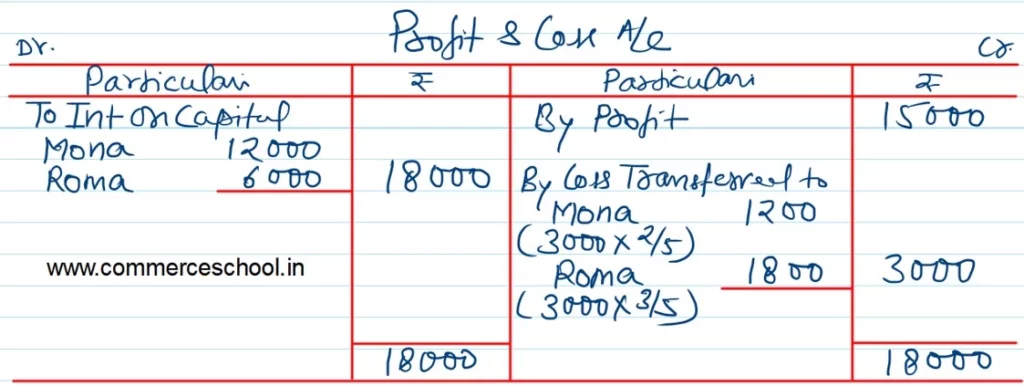 Profit & Loss A/c
Dr. Cr.
Particulars ₹ Particulars ₹
To Int on Capital By Profit 15000
Mona 12000
Roma 6000 18000 By Loss Transferred to
Mona 1200
(3000 x 2/5)
www.commerceschool.in Roma 1800 3000
(3000 x 3/5)
18000 18000